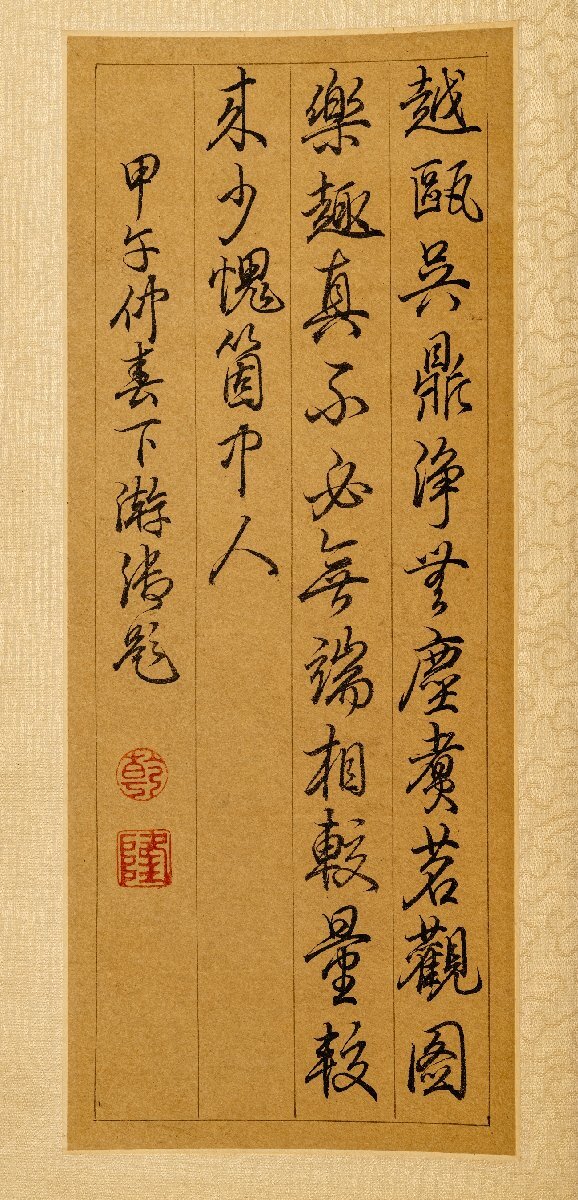 越甌吳鼎淨無塵煮茗觀圖
樂趣真不必無端相較量較
來少愧箇中人
甲午仲春下澣御題
乾
隆